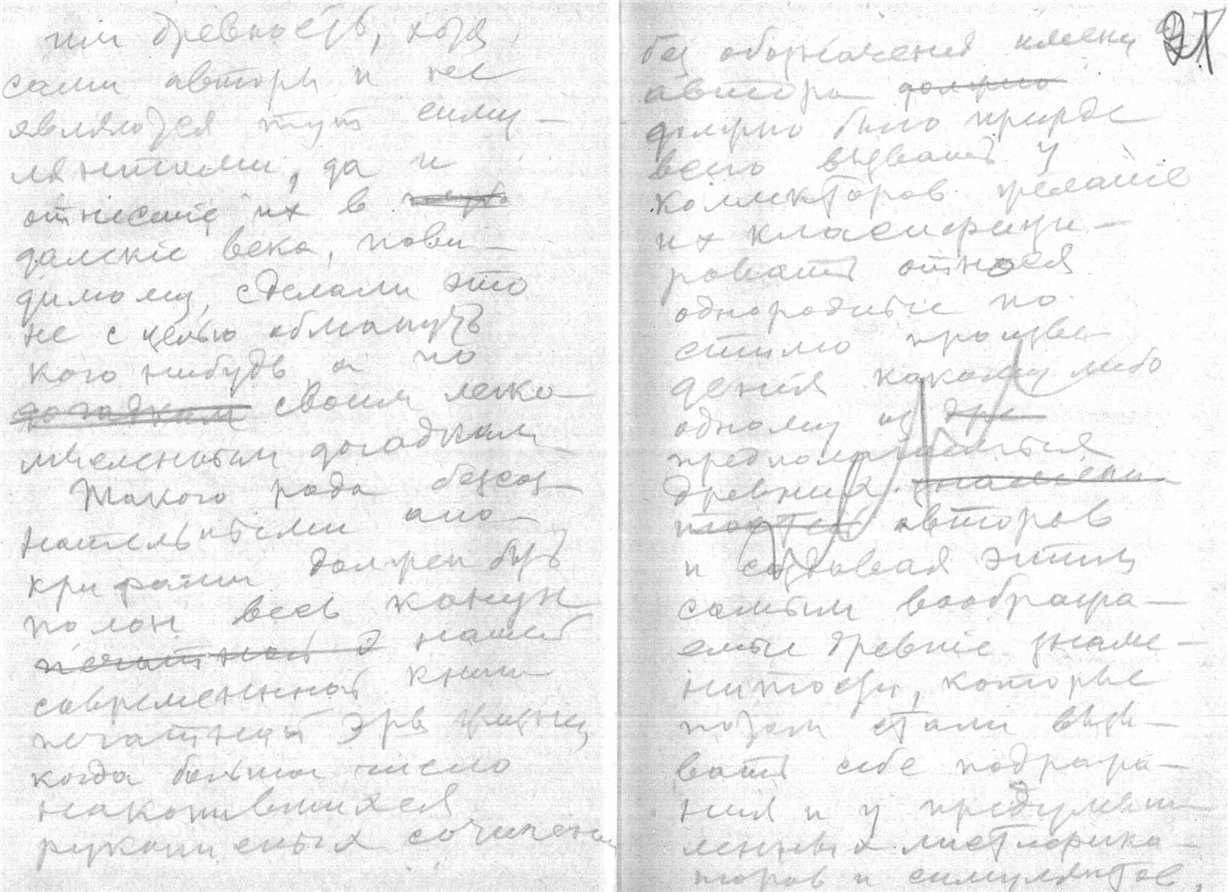 им древность, хотя
сами авторы и не
являются тут симу-
лянтами, да и
отнесшие их в
далекие века, пови-
димому, сделали это
не с целью обмануть
кого нибудь а по
догадкам своим легко-
мысленным догадкам
Такого рода безсоз-
нательными апо-
крифами должен быть
полон весь канун
печатной э нашей
современной книго
печатной эры жизни,
когда большое число
накопившихся
рукописных сочинений
21
без обозначения имени
автора должно
должно было прежде
всего вызвать у
коллекторов желание
их классифици-
ровать относя
однородные по
стилю произве-
дения какому либо
одному из дре
предполагаемых
древних знамени
тостей авторов
и создавая этим
самым воображае-
емые древние знаме-
нитости, которые
потом стали вызы-
вать себе подража-
ния и у предумыш-
ленных мистифика-
торов и симулянтов,